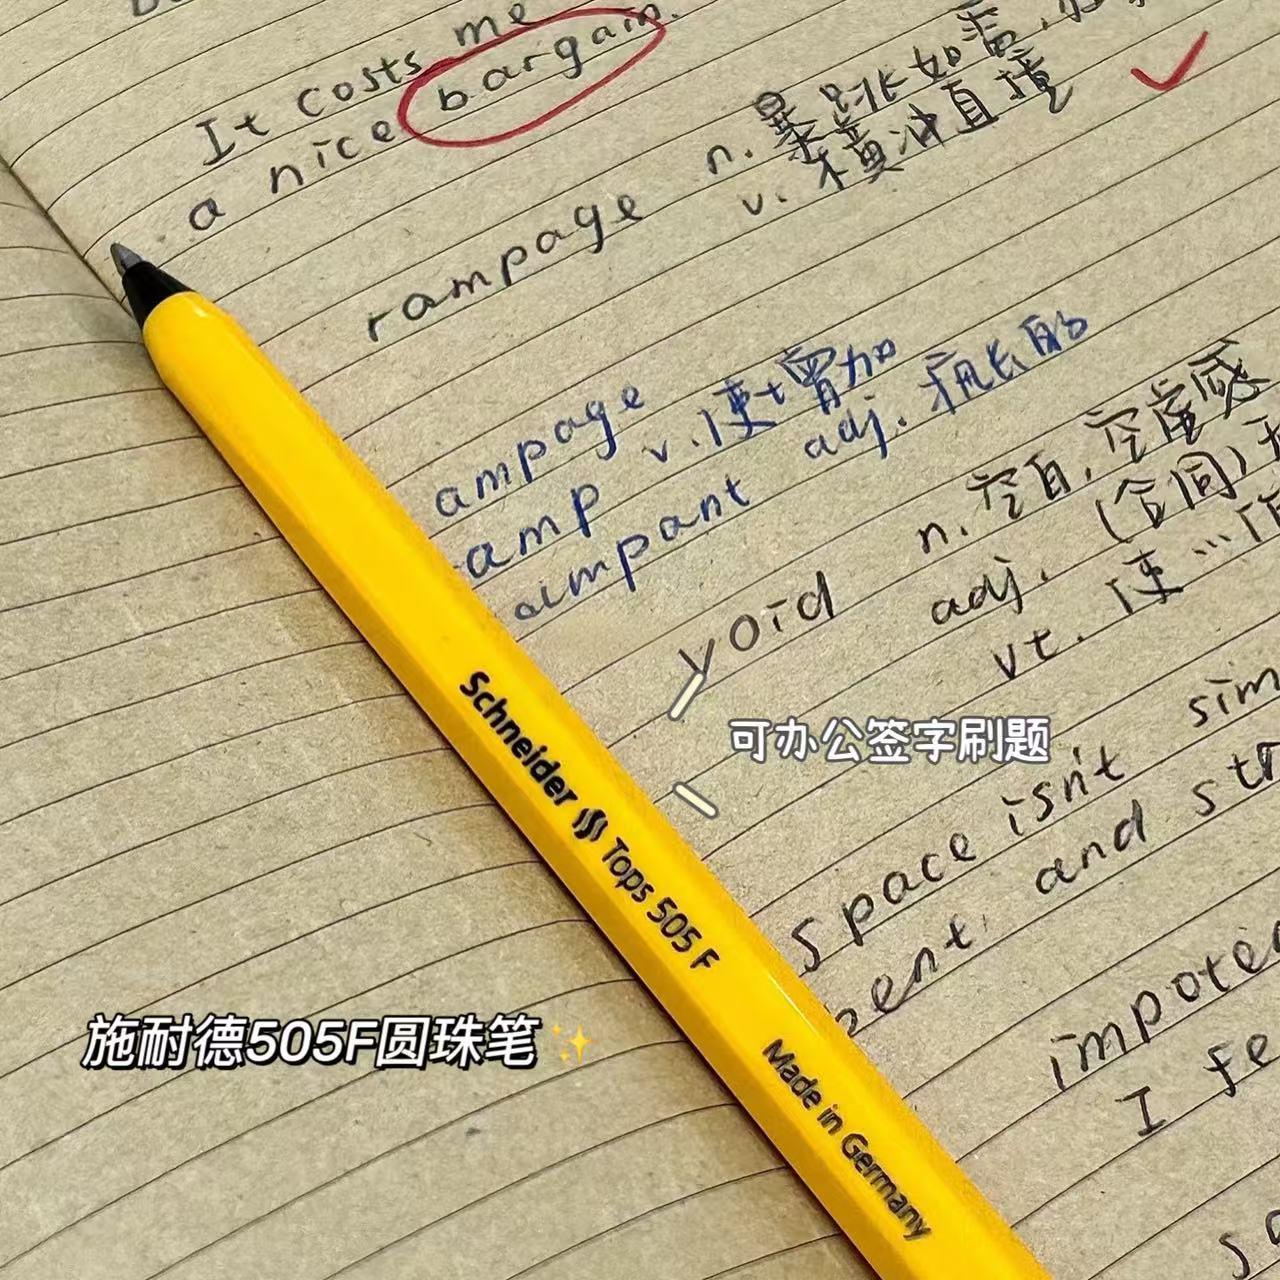 It costs me
a nice bargain.
rampage n. 暴跳如雷,
v. 横冲直撞
ampage
amp v. 使增加
ampant adj. 疯长的
void n. 空白, 空虚感
adj. (合同)
vt. 使…
可办公签字刷题
space isn't sim
bent. and str
impoten
I fe
Schneider Tops 505 F
Made in Germany
施耐德505F圆珠笔